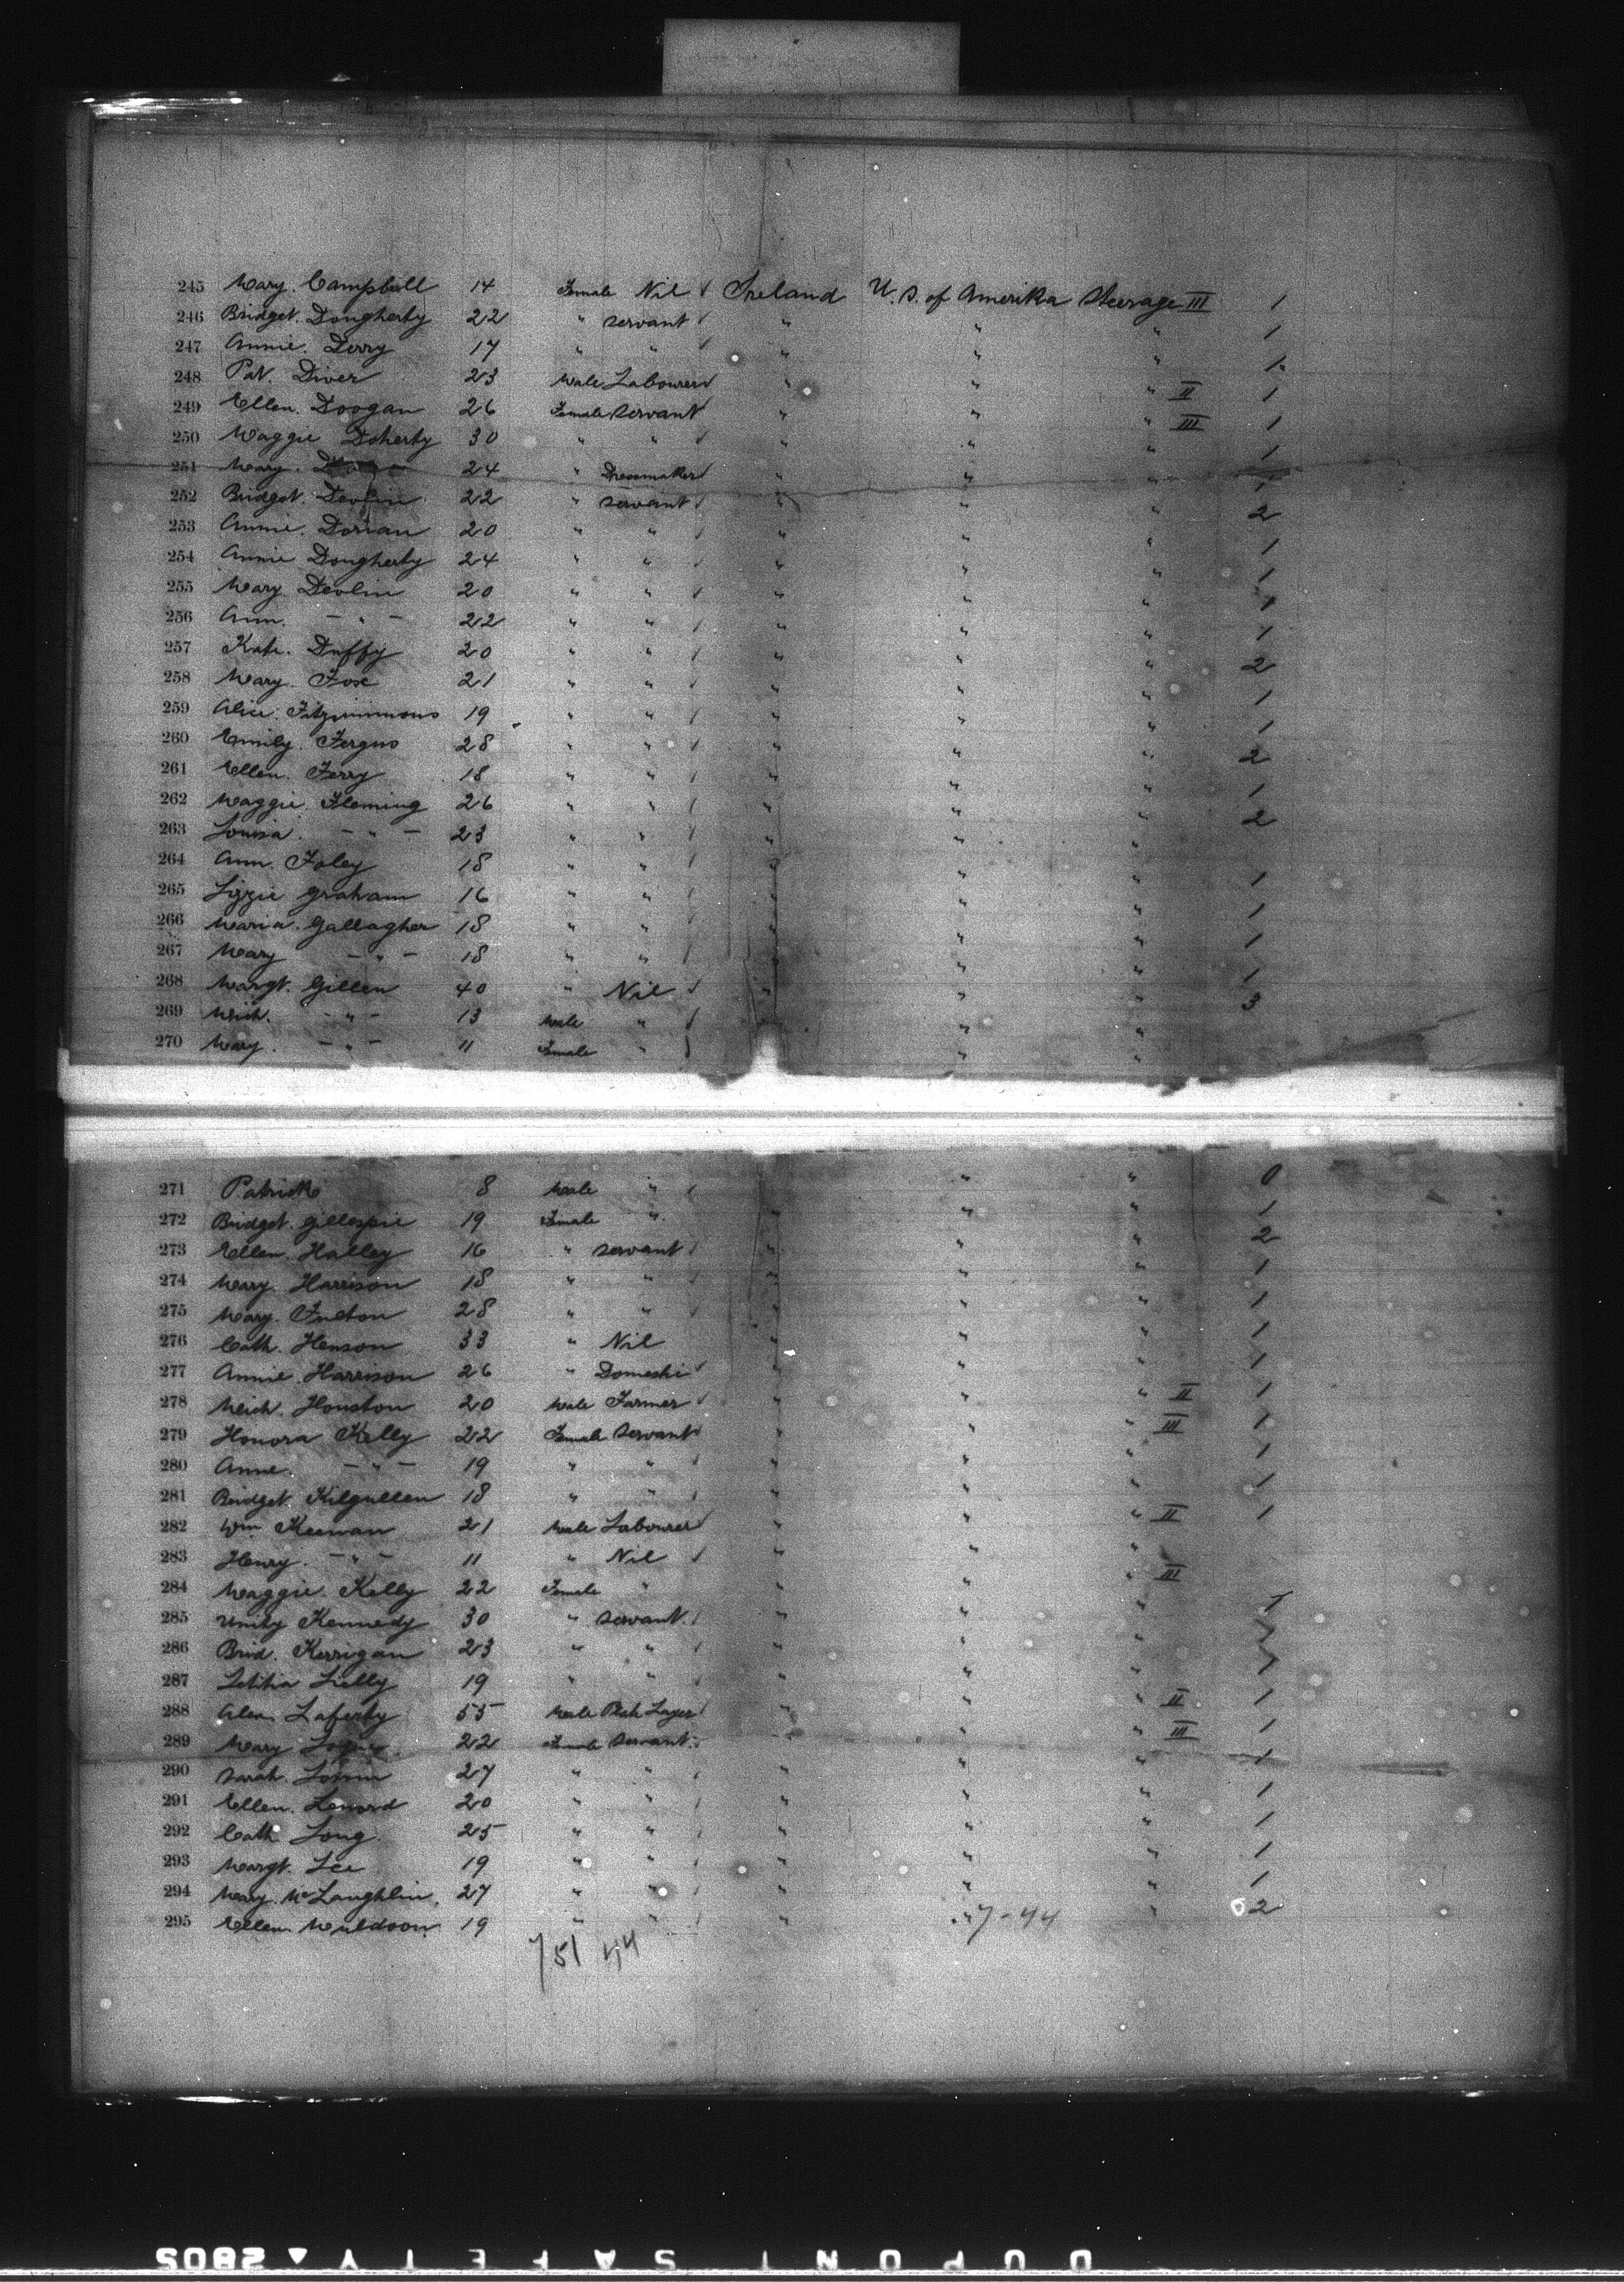 245 Mary. Campbell 14 Female Nil √ Ireland U.S. of Amerika Steerage III 1
246 Bridget. Dongherty 22 " servant √ " " " 1
247 Annie. Derry 17 " " √ " " " 1
248 Pat. Diver 23 Male Labourer √ " " " II 1
249 Ellen. Doogan 26 Female servant " " " III 1
250 Maggie Doherty 30 " " √ " " " 1
251 Mary. 24 " Dressmaker √ " " " 1
252 Bridget. Devlin 22 " servant √ " " " 2
253 Annie. Dorian 20 " " √ " " " 1
254 Annie Dongherty 24 " " √ " " " 1
255 Mary. Devlin 20 " " √ " " " 1
256 Ann. - " - 22 " " √ " " " 1
257 Kate. Duffy 20 " " √ " " " 2
258 Mary. Fox 21 " " √ " " " 1
259 Alice. Fitzsimmons 19 " " √ " " " 1
260 Emily. Fergus 28 " " √ " " " 2
261 Ellen. Ferry 18 " " √ " " " 1
262 Maggie Fleming 26 " " √ " " " 2
263 Louisa. - " - 23 " " √ " " "
264 Ann. Foley 18 " " √ " " " 1
265 Lizzie Graham 16 " " √ " " " 1
266 Maria. Gallagher 18 " " √ " " " 1
267 Mary - " - 18 " " √ " " " 1
268 Margt. Gillen 40 " Nil √ " " " 3
269 Mich. - " - 13 Male " √ " "
270 Mary. - " - 11 Female " √ " "
271 Patrick 8 Male " √ " " 0
272 Bridget. Gillespie 19 Female " " " " 1
273 Ellen. Halley 16 " servant √ " " " 2
274 Mary. Harrison 18 " " √ " " " 1
275 Mary. Fulton 28 " " √ " " " 1
276 Cath. Henson 33 " Nil " " " 1
277 Annie. Harrison 26 " Domestic √ " " " 1
278 Mich. Houston 20 Male Farmer √ " " " II 1
279 Honora Kelly 22 Female Servant √ " " " III 1
280 Anne. - " - 19 " " √ " " " 1
281 Bridget. Kilgullen 18 " " √ " " " 1
282 Wm Keenan 21 Male Labourer √ " " " II 1
283 Henry. - " - 11 " Nil √ " " "
284 Maggie. Kelly 22 Female " " " " III 1
285 Unity Kennedy 30 " servant. √ " " " 1
286 Brid. Kerrigan 23 " " √ " " " 1
287 Letitia Lielly 19 " " √ " " "
288 Alex. Laferty 55 Male Plate Layer √ " " " II 1
289 Mary Logue 22 Female Servant. √ " " " III 1
290 Sarah. 27 " " √ " " " 1
291 Ellen. Lenord 20 " " √ " " " 1
292 Cath. Long 25 " " √ " " " 1
293 Margt. Lee 19 " " √ " " " 1
294 Mary. McLaughlin. 27 " " √ " " " 1
295 Ellen. Muldoon. 19 " " √ " " 7-44 " 2
751 44
DUPONT SAFETY ▲ 2805